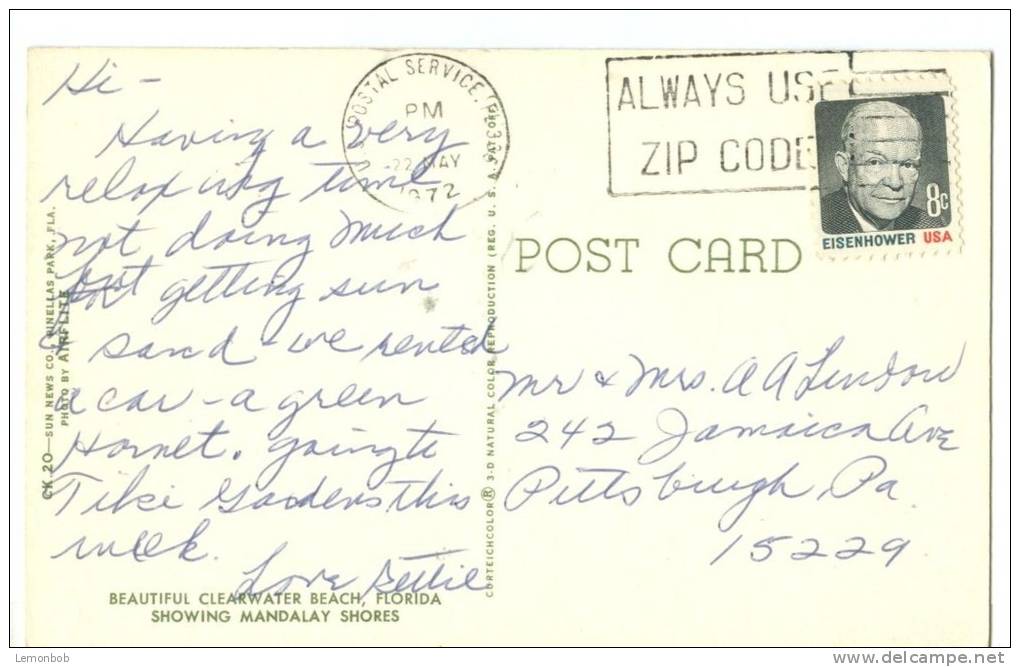 Hi -
Having a very
relaxing time
not doing much
but getting sun
& sand - we rented
a car - a green
Hornet. going to
Tiki Gardens this
week.
Love Bettie
BEAUTIFUL CLEARWATER BEACH, FLORIDA
SHOWING MANDALAY SHORES
CK.20—SUN NEWS CO., PINELLAS PARK, FLA.
PHOTO BY AIRFLITE
CURTEICHCOLOR® 3-D NATURAL COLOR REPRODUCTION (REG. U. S. A. PAT. OFF.)
POSTAL SERVICE
PM
22 MAY
1972
ALWAYS USE
ZIP CODE
8c
EISENHOWER USA
POST CARD
Mr & Mrs. A A
242 Jamaica Ave
Pittsburgh, Pa
15229
Lemonbob
delcampe.net